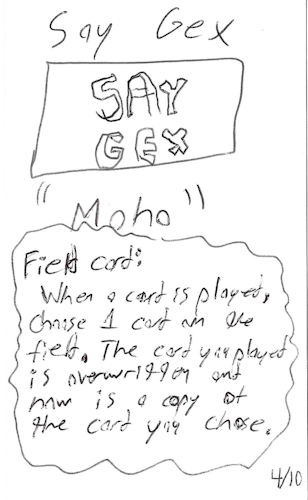 Say Gex
SAY
GEX
"Moho"
Field card:
When a card is played,
choose 1 card on the
field. The card you played
is overwritten and
now is a copy of
the card you chose.
4/10